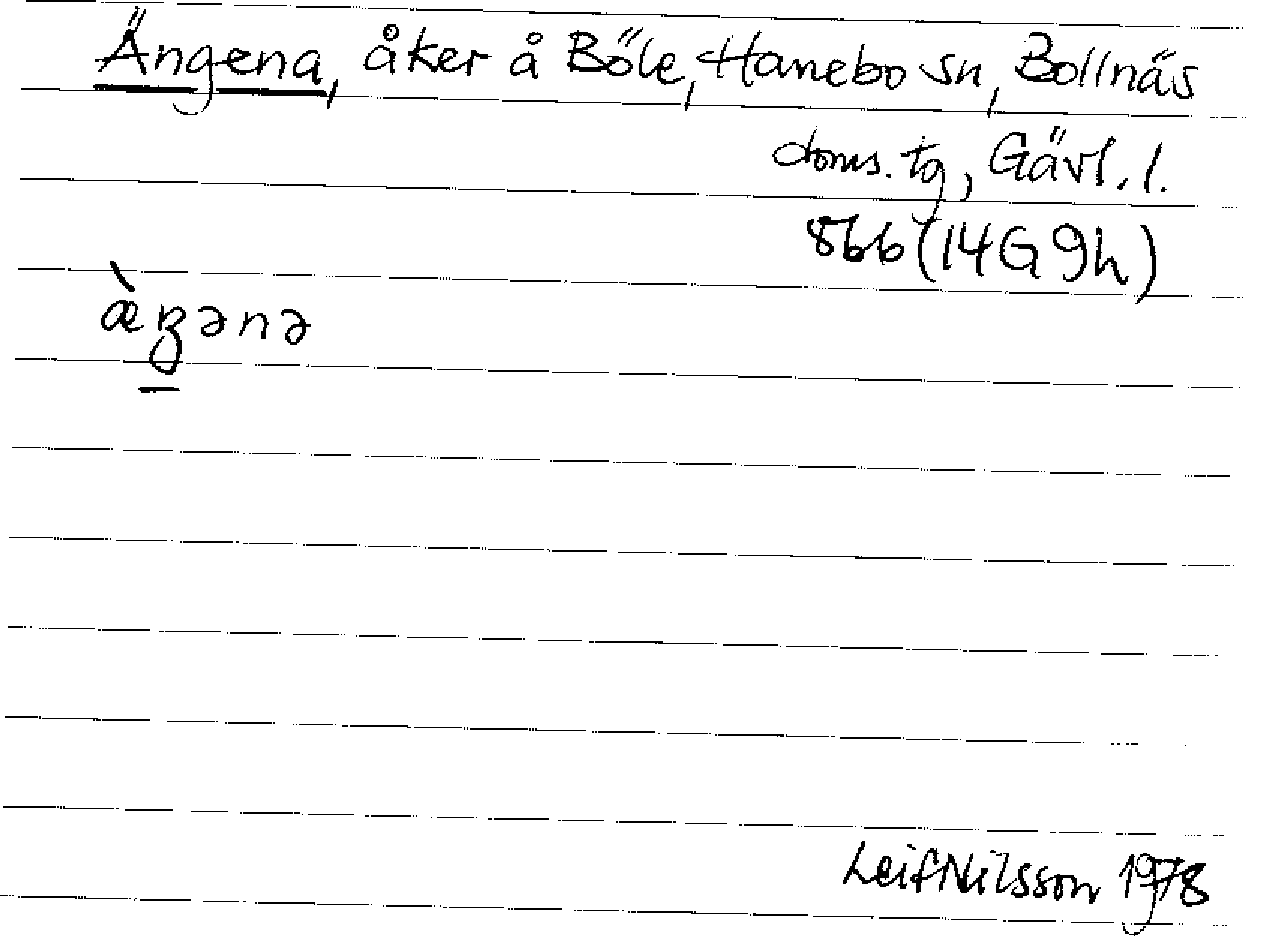 Ängena, åker å Böle, Hanebo sn, Bollnäs
doms. tg, Gävl. l.
866 (14G 9h)
æ̀ŋənə
Leif Nilsson 1978